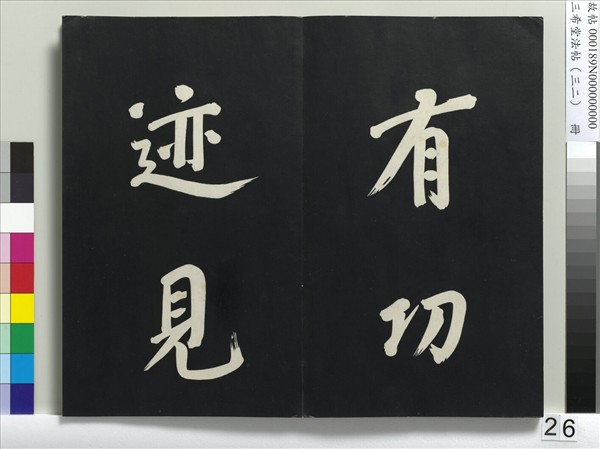 有功
迹見
故帖 000189N000000000
三希堂法帖(三二) 冊
26